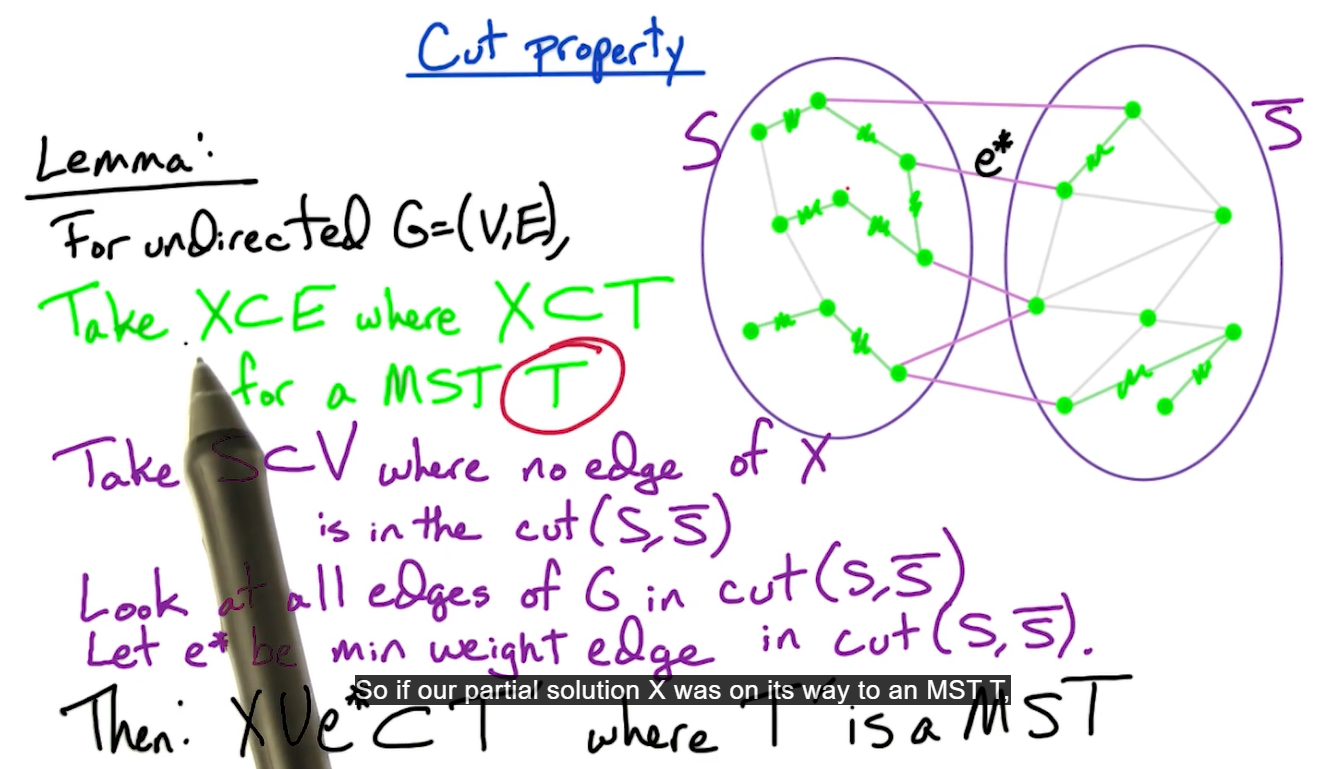 Cut property
S
e*
S̅
Lemma:
For undirected G=(V,E),
Take X⊂E where X⊂T
for a MST T
Take S⊂V where no edge of X
is in the cut(S,S̅)
Look at all edges of G in cut(S,S̅)
Let e* be min weight edge in cut(S,S̅).
So if our partial solution X was on its way to an MST T,
Then: X∪e*⊂T' where T' is a MST